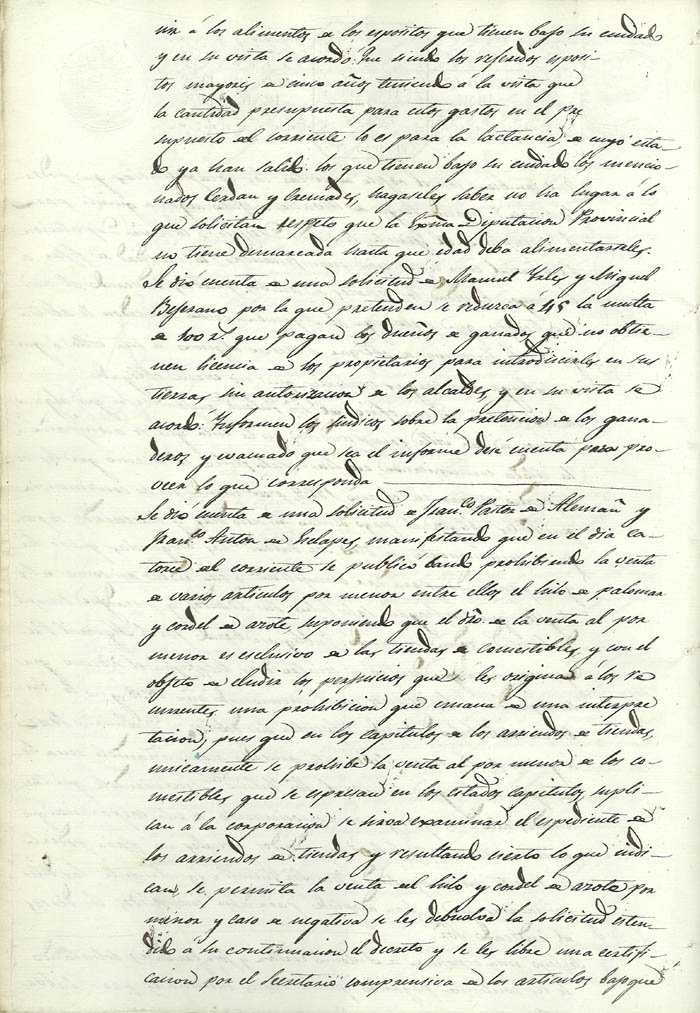 nir á los alimentos de los espositos que tienen bajo su cuidado
y en su vista se acordó: Que siendo los referidos esposi-
tos mayores de cinco años teniendo á la vista que
la cantidad presupuesta para estos gastos en el pre
supuesto del corriente lo es para la lactancia de cuyo esta-
do ya han salido los que tienen bajo su cuidado los mencio-
nados Cerdan y Cremades, hagaseles saber no ha lugar á lo
que solicitan respeto que la Exma Diputacion Provincial
no tiene demarcada hasta que edad deba alimentarseles.
Se dió cuenta de una solicitud de Manuel y Miguel
por la que pretenden se reduzca a 45 la multa
de 100 r.s que pagan los dueños de ganados que no obtie-
nen licencia de los propietarios para introducirles en sus
tierras sin autorizacion de los alcaldes, y en su vista se
acordó: Informen los sindicos sobre la pretencion de los gana-
deros y evacuado que sea el informe dese cuenta para pro-
veer lo que corresponda
Se dió cuenta de una solicitud de Fran.co Pastor de Alemañ y
Fran.co Anton de Selapes, manifestando que en el dia ca-
torce del corriente se publicó bando prohibiendo la venta
de varios articulos por menor entre ellos el hilo de palomar
y cordel de azote, suponiendo que el dro. de la venta al por
menor es esclusivo de las tiendas de comestibles, y con el
objeto de eludir los perjuicios que les origina á los re
currentes, una prohibicion que emana de una interpre
tacion, pues que en los capitulos de los arriendos de tiendas,
unicamente se prohibe la venta al por menor de los co-
mestibles que se espresan en los citados capitulos, supli-
can á la corporacion se sirva examinar el espediente de
los arriendos de tiendas y resultando cierto lo que indi-
can, se permita la venta del hilo y cordel de azote por
menor y caso de negativa se les debuelva la solicitud esten-
dido á su continuacion el decreto y se les libre una certifi-
cacion por el Secretario comprensiva de los articulos bajo que